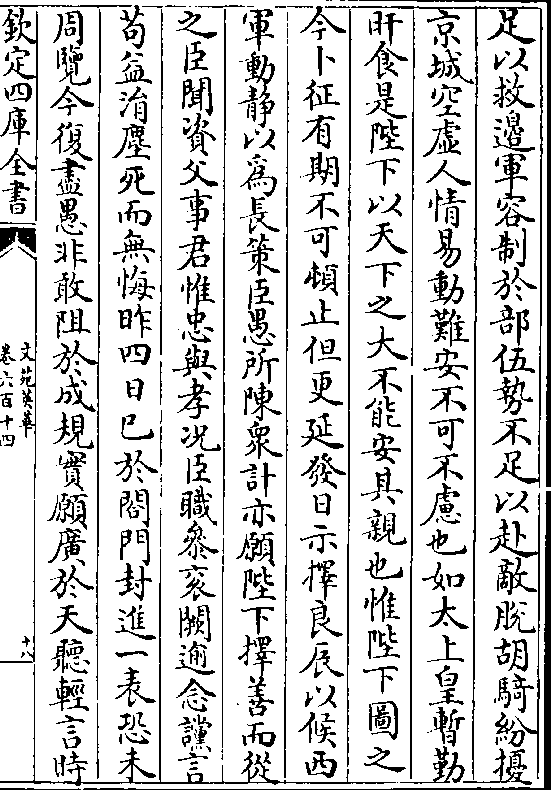 足以救邉軍容制於部伍勢不足以赴敵脫胡騎紛擾
京城空虛人情易動難安不可不慮也如太上皇暫勤
旰食是陛下以天下之大不能安其親也惟陛下圖之
今卜征有期不可頓止但更延發日示擇良辰以候西
軍動静以爲長策臣愚所陳衆計亦願陛下擇善而從
之臣聞資父事君惟忠與孝况臣職叅衮闕逾念讜言
苟益涓塵死而無悔昨四日已於閤門封進一表恐未
周覽今復盡愚非敢阻於成規實願廣於天聽輕言時
欽定四庫全書
文苑英華
卷六百十四
十八